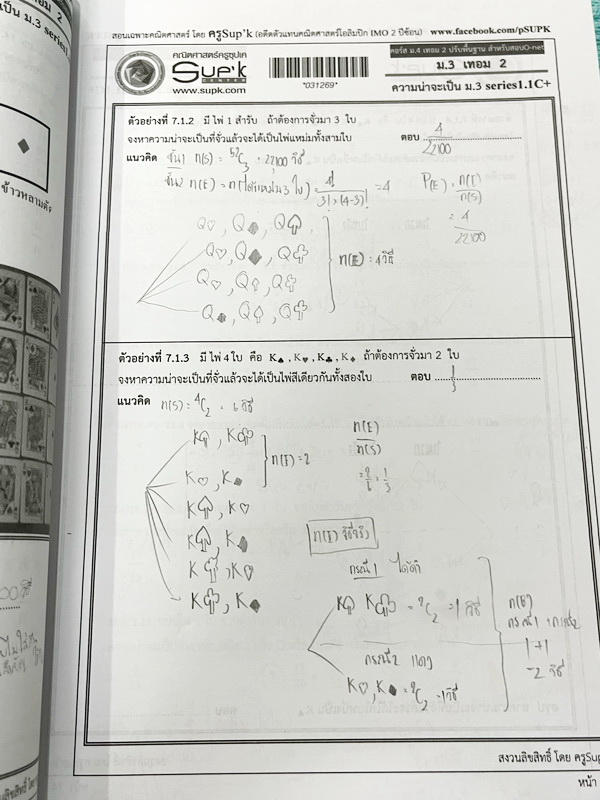 สอนเฉพาะคณิตศาสตร์ โดย ครูSup'k (อดีตตัวแทนคณิตศาสตร์โอลิมปิก IMO 2 ปีซ้อน) www.facebook.com/pSUPK
คณิตศาสตร์ครูซุปเค
Sup'k
CENTER
www.supk.com
*031269*
คอร์ส ม.4 เทอม 2 ปรับพื้นฐาน สำหรับสอบO-net
ม.3 เทอม 2
ความน่าจะเป็น ม.3 series1.1C+
ตัวอย่างที่ 7.1.2 มีไพ่ 1 สำรับ ถ้าต้องการจั่วมา 3 ใบ
จงหาความน่าจะเป็นที่จั่วแล้วจะได้เป็นไพ่แหม่มทั้งสามใบ ตอบ 4/22100
แนวคิด ขั้น1 n(S) = ⁵²C₃ = 22100 วิธี
ขั้น2 n(E) = n(ได้แหม่ม 3 ใบ) = 4!/3!×(4-3)! = 4 P(E) = n(E)/n(S)
= 4/22100
Q♡, Q♦, Q♤
Q♡, Q♦, Q♧
Q♡, Q♤, Q♧
Q♦, Q♤, Q♧
n(E) = 4 วิธี
ตัวอย่างที่ 7.1.3 มีไพ่ 4 ใบ คือ K♠, K♥, K♣, K♦ ถ้าต้องการจั่วมา 2 ใบ
จงหาความน่าจะเป็นที่จั่วแล้วจะได้เป็นไพ่สีเดียวกันทั้งสองใบ ตอบ 1/3
แนวคิด n(S) = ⁴C₂ = 6 วิธี
K♤, K♧
K♡, K♦
n(E) = 2
K♤, K♡
K♤, K♦
K♧, K♡
K♧, K♦
n(E)/n(S)
= 2/6 = 1/3
กรณี 1 ได้ดำ
K♤ K♧ = ²C₂ = 1 วิธี
กรณี 2 แดง
K♡, K♦ = ²C₂ = 1 วิธี
n(E)
1+1
= 2 วิธี
สงวนลิขสิทธิ์ โดย ครูSup
หน้า
เป็น ม.3 series1
ข้าวหลามตัด